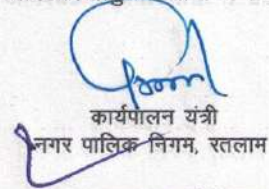 कार्यपालन यंत्री
नगर पालिक निगम, रतलाम